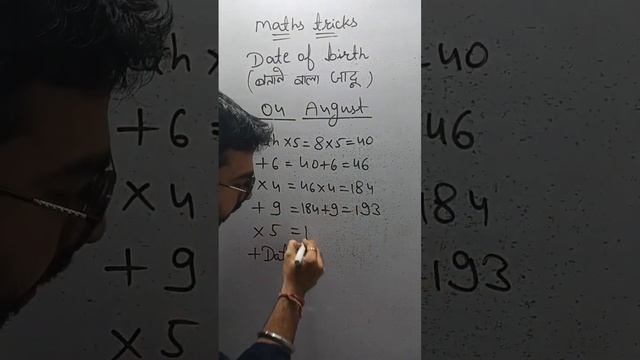 Maths tricks
Date of birth
(बताने वाला जादू)
04 August
th ×5 = 8×5 = 40
+ 6 = 40+6 = 46
× 4 = 46×4 = 184
+ 9 = 184+9 = 193
× 5 = 1
+ Dat